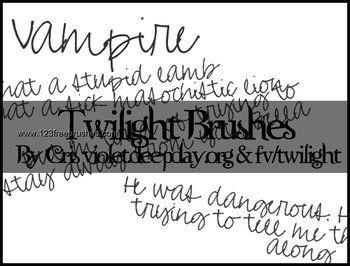 vampire
hat a stupid lamb
hat a sick masochistic lion
Twilight Brushes
www.123freebrushes.com
trying
Bella
By Cris violet.deep-day.org & fv/twilight
stay away from
He was dangerous. H
trying to tell me th
along